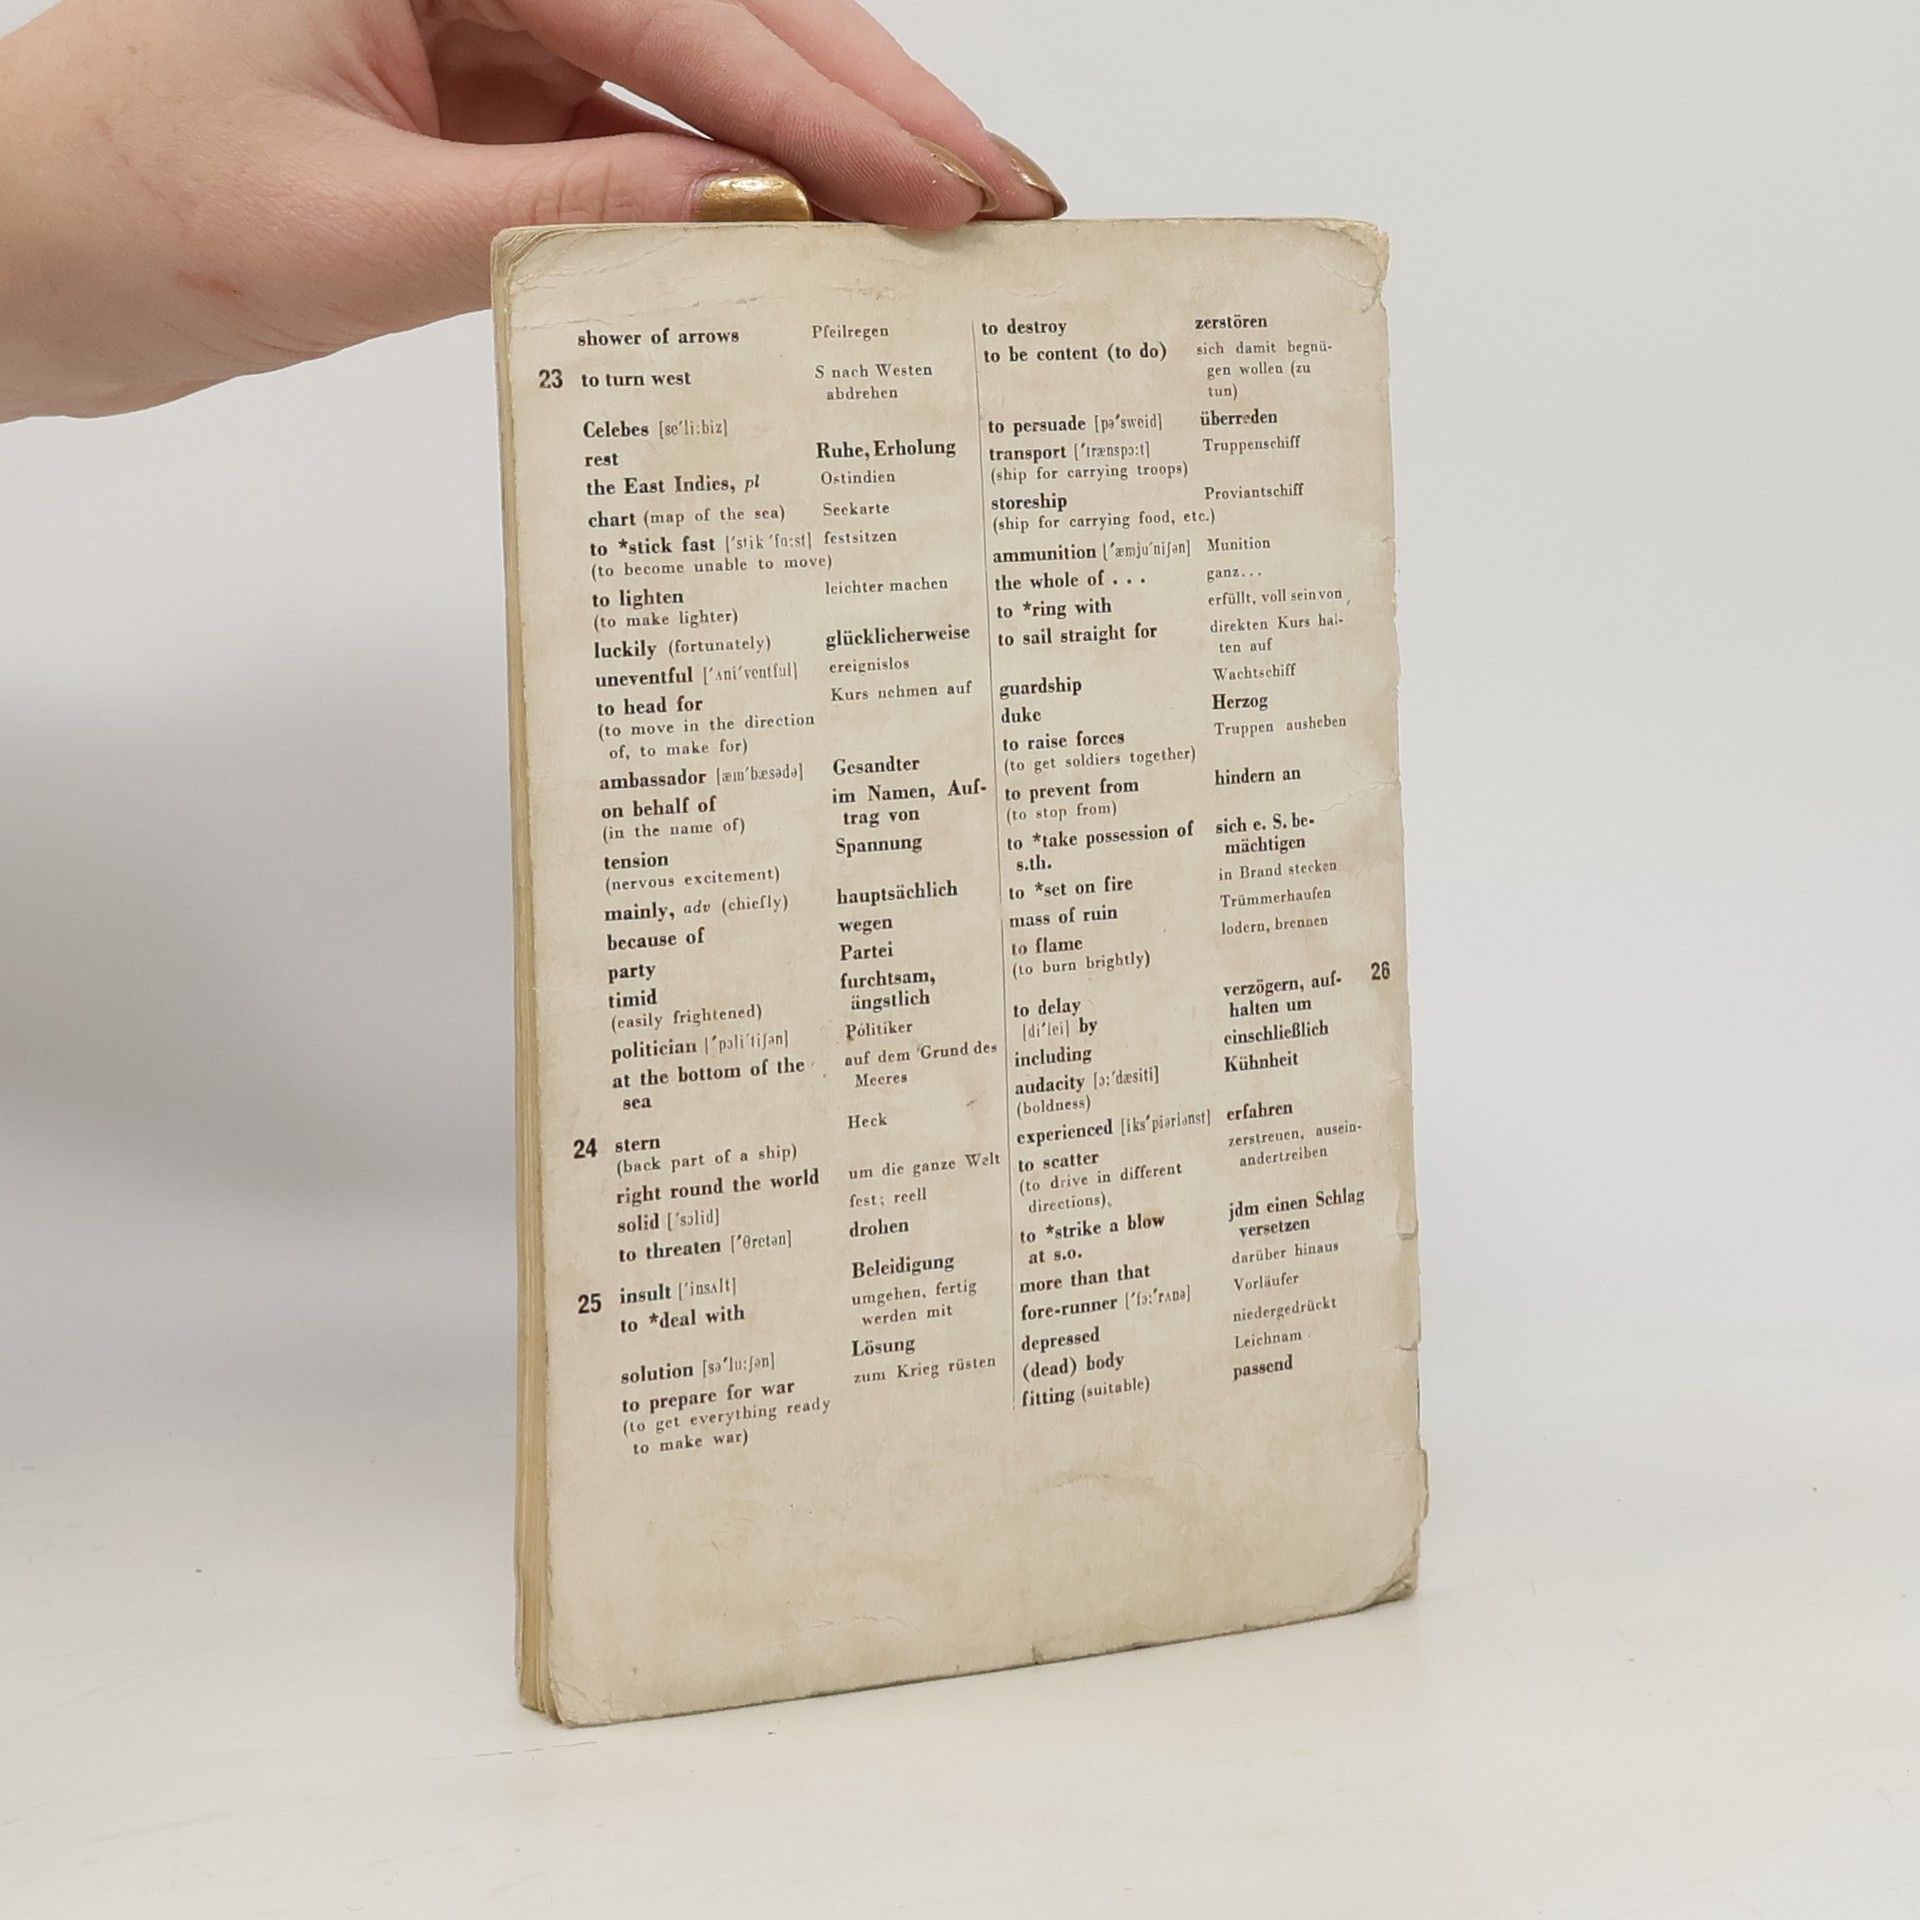 shower of arrows Pfeilregen
23 to turn west S nach Westen
abdrehen
Celebes [se'li:biz]
rest Ruhe, Erholung
the East Indies, pl Ostindien
chart (map of the sea) Seekarte
to *stick fast ['stik 'fɑ:st] festsitzen
(to become unable to move)
to lighten leichter machen
(to make lighter)
luckily (fortunately) glücklicherweise
uneventful ['ʌni'ventful] ereignislos
to head for Kurs nehmen auf
(to move in the direction
of, to make for)
ambassador [æm'bæsədə] Gesandter
on behalf of im Namen, Auf-
(in the name of) trag von
tension Spannung
(nervous excitement)
mainly, adv (chiefly) hauptsächlich
because of wegen
party Partei
timid furchtsam,
(easily frightened) ängstlich
politician ['pɔli'tiʃən] Politiker
at the bottom of the auf dem Grund des
sea Meeres
24 stern Heck
(back part of a ship)
right round the world um die ganze Welt
solid ['sɔlid] fest; reell
to threaten ['θretən] drohen
25 insult ['insʌlt] Beleidigung
to *deal with umgehen, fertig
werden mit
solution [sə'lu:ʃən] Lösung
to prepare for war zum Krieg rüsten
(to get everything ready
to make war)
to destroy zerstören
to be content (to do) sich damit begnü-
gen wollen (zu
tun)
to persuade [pə'sweid] überreden
transport ['trænspɔ:t] Truppenschiff
(ship for carrying troops)
storeship Proviantschiff
(ship for carrying food, etc.)
ammunition ['æmju'niʃən] Munition
the whole of . . . ganz...
to *ring with erfüllt, voll sein von
to sail straight for direkten Kurs hal-
ten auf
guardship Wachtschiff
duke Herzog
to raise forces Truppen ausheben
(to get soldiers together)
to prevent from hindern an
(to stop from)
to *take possession of sich e. S. be-
s.th. mächtigen
to *set on fire in Brand stecken
mass of ruin Trümmerhaufen
to flame lodern, brennen
(to burn brightly)
to delay verzögern, auf- 26
[di'lei] by halten um
including einschließlich
audacity [ɔ:'dæsiti] Kühnheit
(boldness)
experienced [iks'piəriənst] erfahren
to scatter zerstreuen, ausein-
(to drive in different andertreiben
directions)
to *strike a blow jdm einen Schlag
at s.o. versetzen
more than that darüber hinaus
fore-runner ['fɔ:'rʌnə] Vorläufer
depressed niedergedrückt
(dead) body Leichnam
fitting (suitable) passend